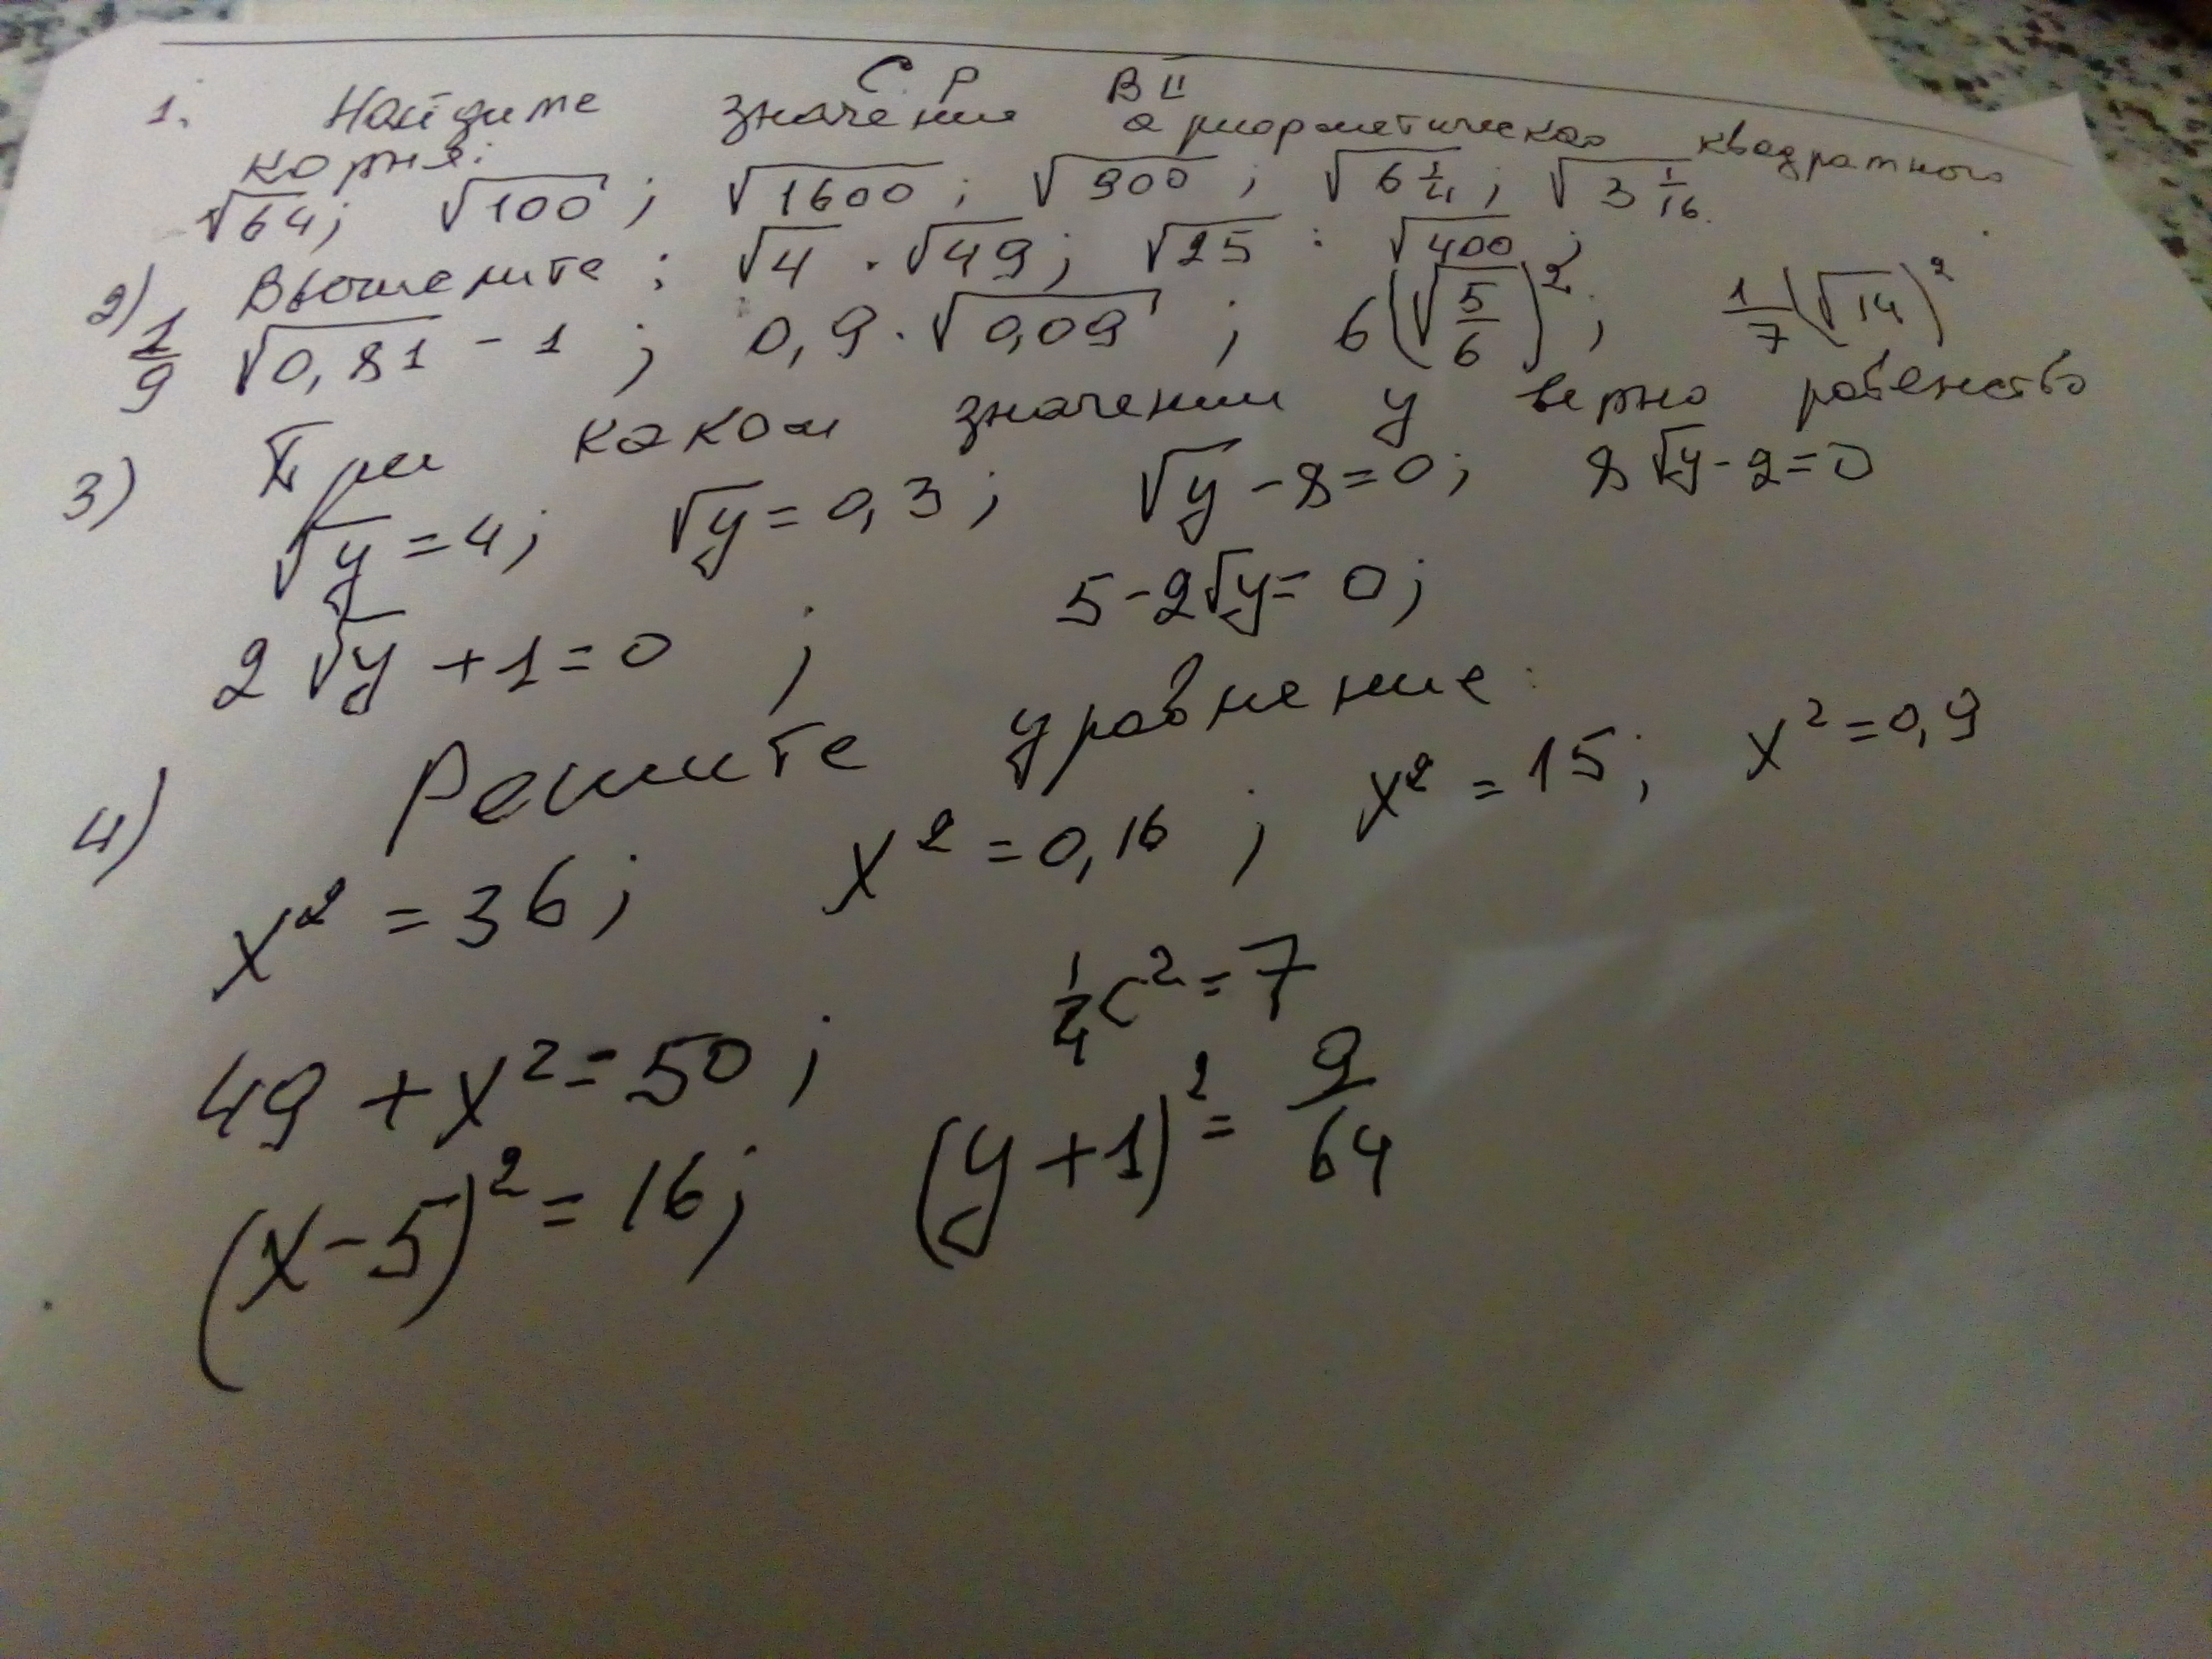 С. Р В II
1. Найдите значение арифметического квадратного
корня:
√64; √100; √1600; √900; √6 1/4; √3 1/16.
2) Вычислите: √4 · √49; √25 : √400;
1/9 √0,81 - 1; 0,9 · √0,09; 6(√5/6)²; 1/7(√14)²
3) При каком значении y верно равенство
√y = 4; √y = 0,3; √y - 8 = 0; 8√y - 2 = 0
2√y + 1 = 0; 5 - 2√y = 0;
4) Решите уравнение:
x² = 36; x² = 0,16; x² = 15; x² = 0,9
49 + x² = 50; 1/4 c² = 7
(x - 5)² = 16; (y + 1)² = 9/64